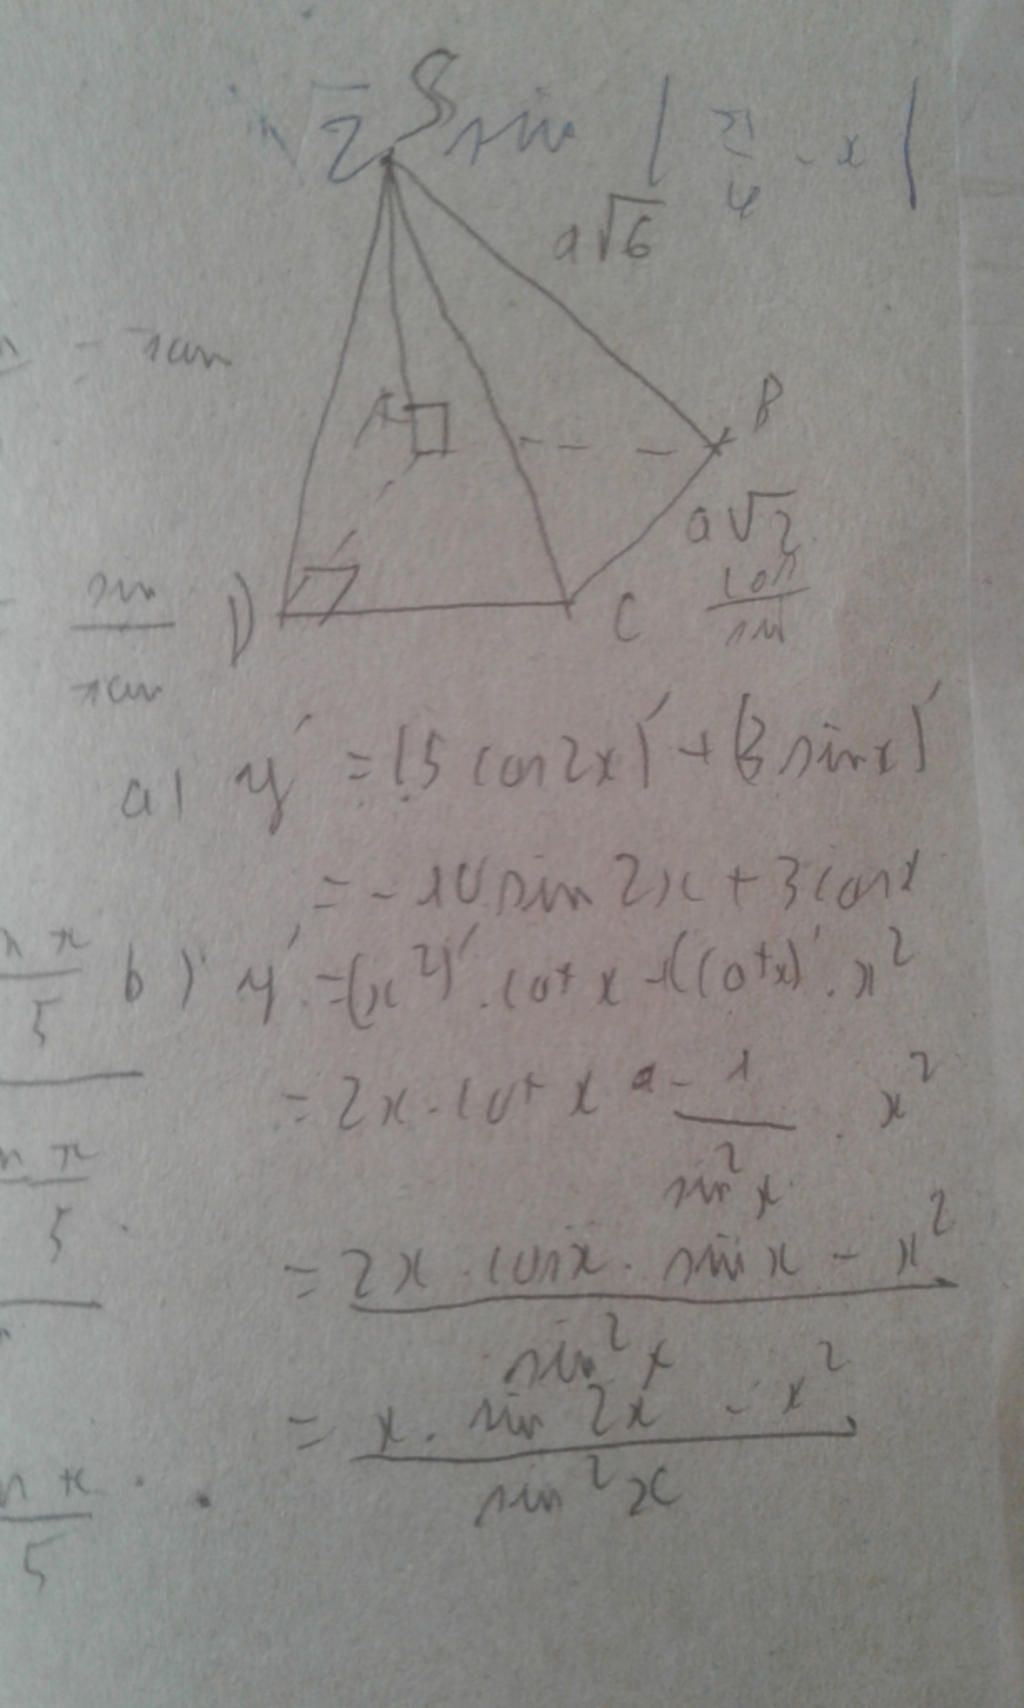 √2 sin (π/4 - x)
S
a√6
A
B
a√2
D
C
sin
cos
sin
a) y' = (5 cos 2x)' + (3 sin x)'
= -10 sin 2x + 3 cos x
b) y' = (x²)' . cot x + (cot x)' . x²
= 2x . cot x - 1/sin² x . x²
= 2x . cos x . sin x - x² / sin² x
= x . sin 2x - x² / sin² x
5
5
5